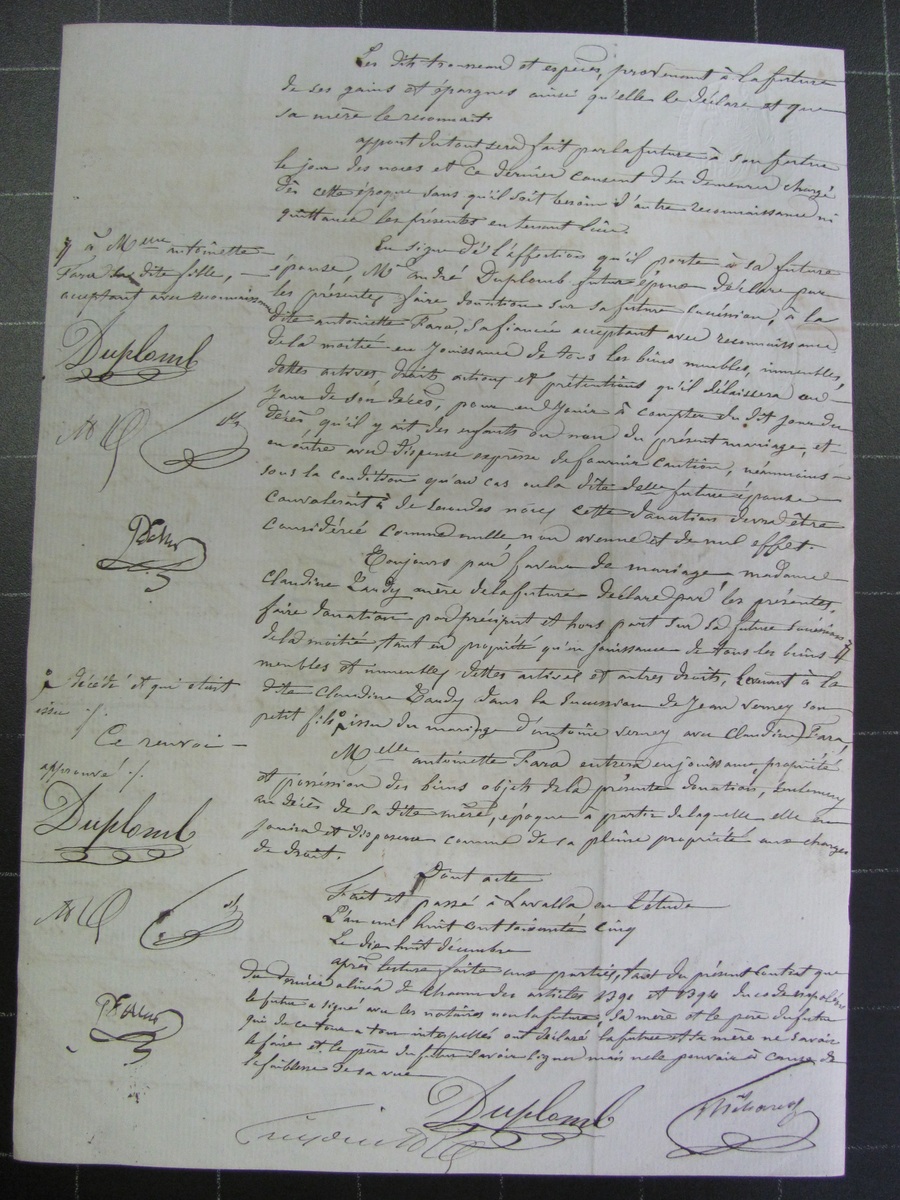 Les dits trousseau et espèces, provenant à la future
de ses gains et épargnes ainsi qu'elle le déclare et que
sa mère le reconnait.
apport du tout sera fait par la future à son futur
le jour des noces et ce dernier consent d'en demeurer chargé
dès cette époque sans qu'il soit besoin d'autre reconnaissance ni
quittance les présentes en tenant lieu.
En signe de l'affection qu'il porte à sa future
épouse, Mr andré Duplomb futur époux déclare par
les présentes faire donation sur sa future succession, à la
dite antoinette Fara, sa fiancée acceptant avec reconnaissance
de la moitié en Jouissance de tous les biens meubles, immeubles,
dettes actives droits actions et prétentions qu'il délaissera au
Jour de son décès, pour en Jouir à compter du dit jour du
décès, qu'il y ait des enfants ou non du présent mariage, et
en outre avec dispense expresse de fournir caution, néanmoins
sous la condition qu'au cas ou la dite delle future épouse
convolerait à de secondes noces cette donation devra être
considérée comme nulle non avenue et de nul effet.
Toujours par faveur de mariage madame
Claudine Tardy mère de la future déclare par les présentes,
faire donation par préciput et hors part sur sa future succession
de la moitié, tant en propriété qu'en jouissance de tous les biens
meubles et immeubles dettes actives et autres droits, revenant à la
dite Claudine Tardy dans la succession de Jean verney son
petit fils issu du mariage d'antoine verney avec Claudine Fara
Melle antoinette Fara entrera en jouissance, propriété
et possession des biens objets de la présente donation, seulement
au décès de sa dite mère, époque à partir de laquelle elle en
jouira et disposera comme de sa pleine propriété aux charges
de droit.
Dont acte
Fait et passé à Lavalla en l'étude
L'an mil huit cent soixante cinq
Le dix huit décembre
après lecture faite aux parties, tant du présent contrat que
du dernier alinéa de chacun des articles 1391 et 1394 du code napoléon
le futur a signé avec les notaires non la future, sa mère et le père du futur
qui de ce tous à tour interpellés ont déclaré la future et sa mère ne savoir
le faire et le père du futur savoir signer mais ne le pouvoir à cause de
la faiblesse de sa vue
Duplomb
à Melle antoinette
Fara sa dite fille,
acceptant avec reconnaissance
Duplomb
décédé et qui était
issu
Ce renvoi
approuvé
Duplomb